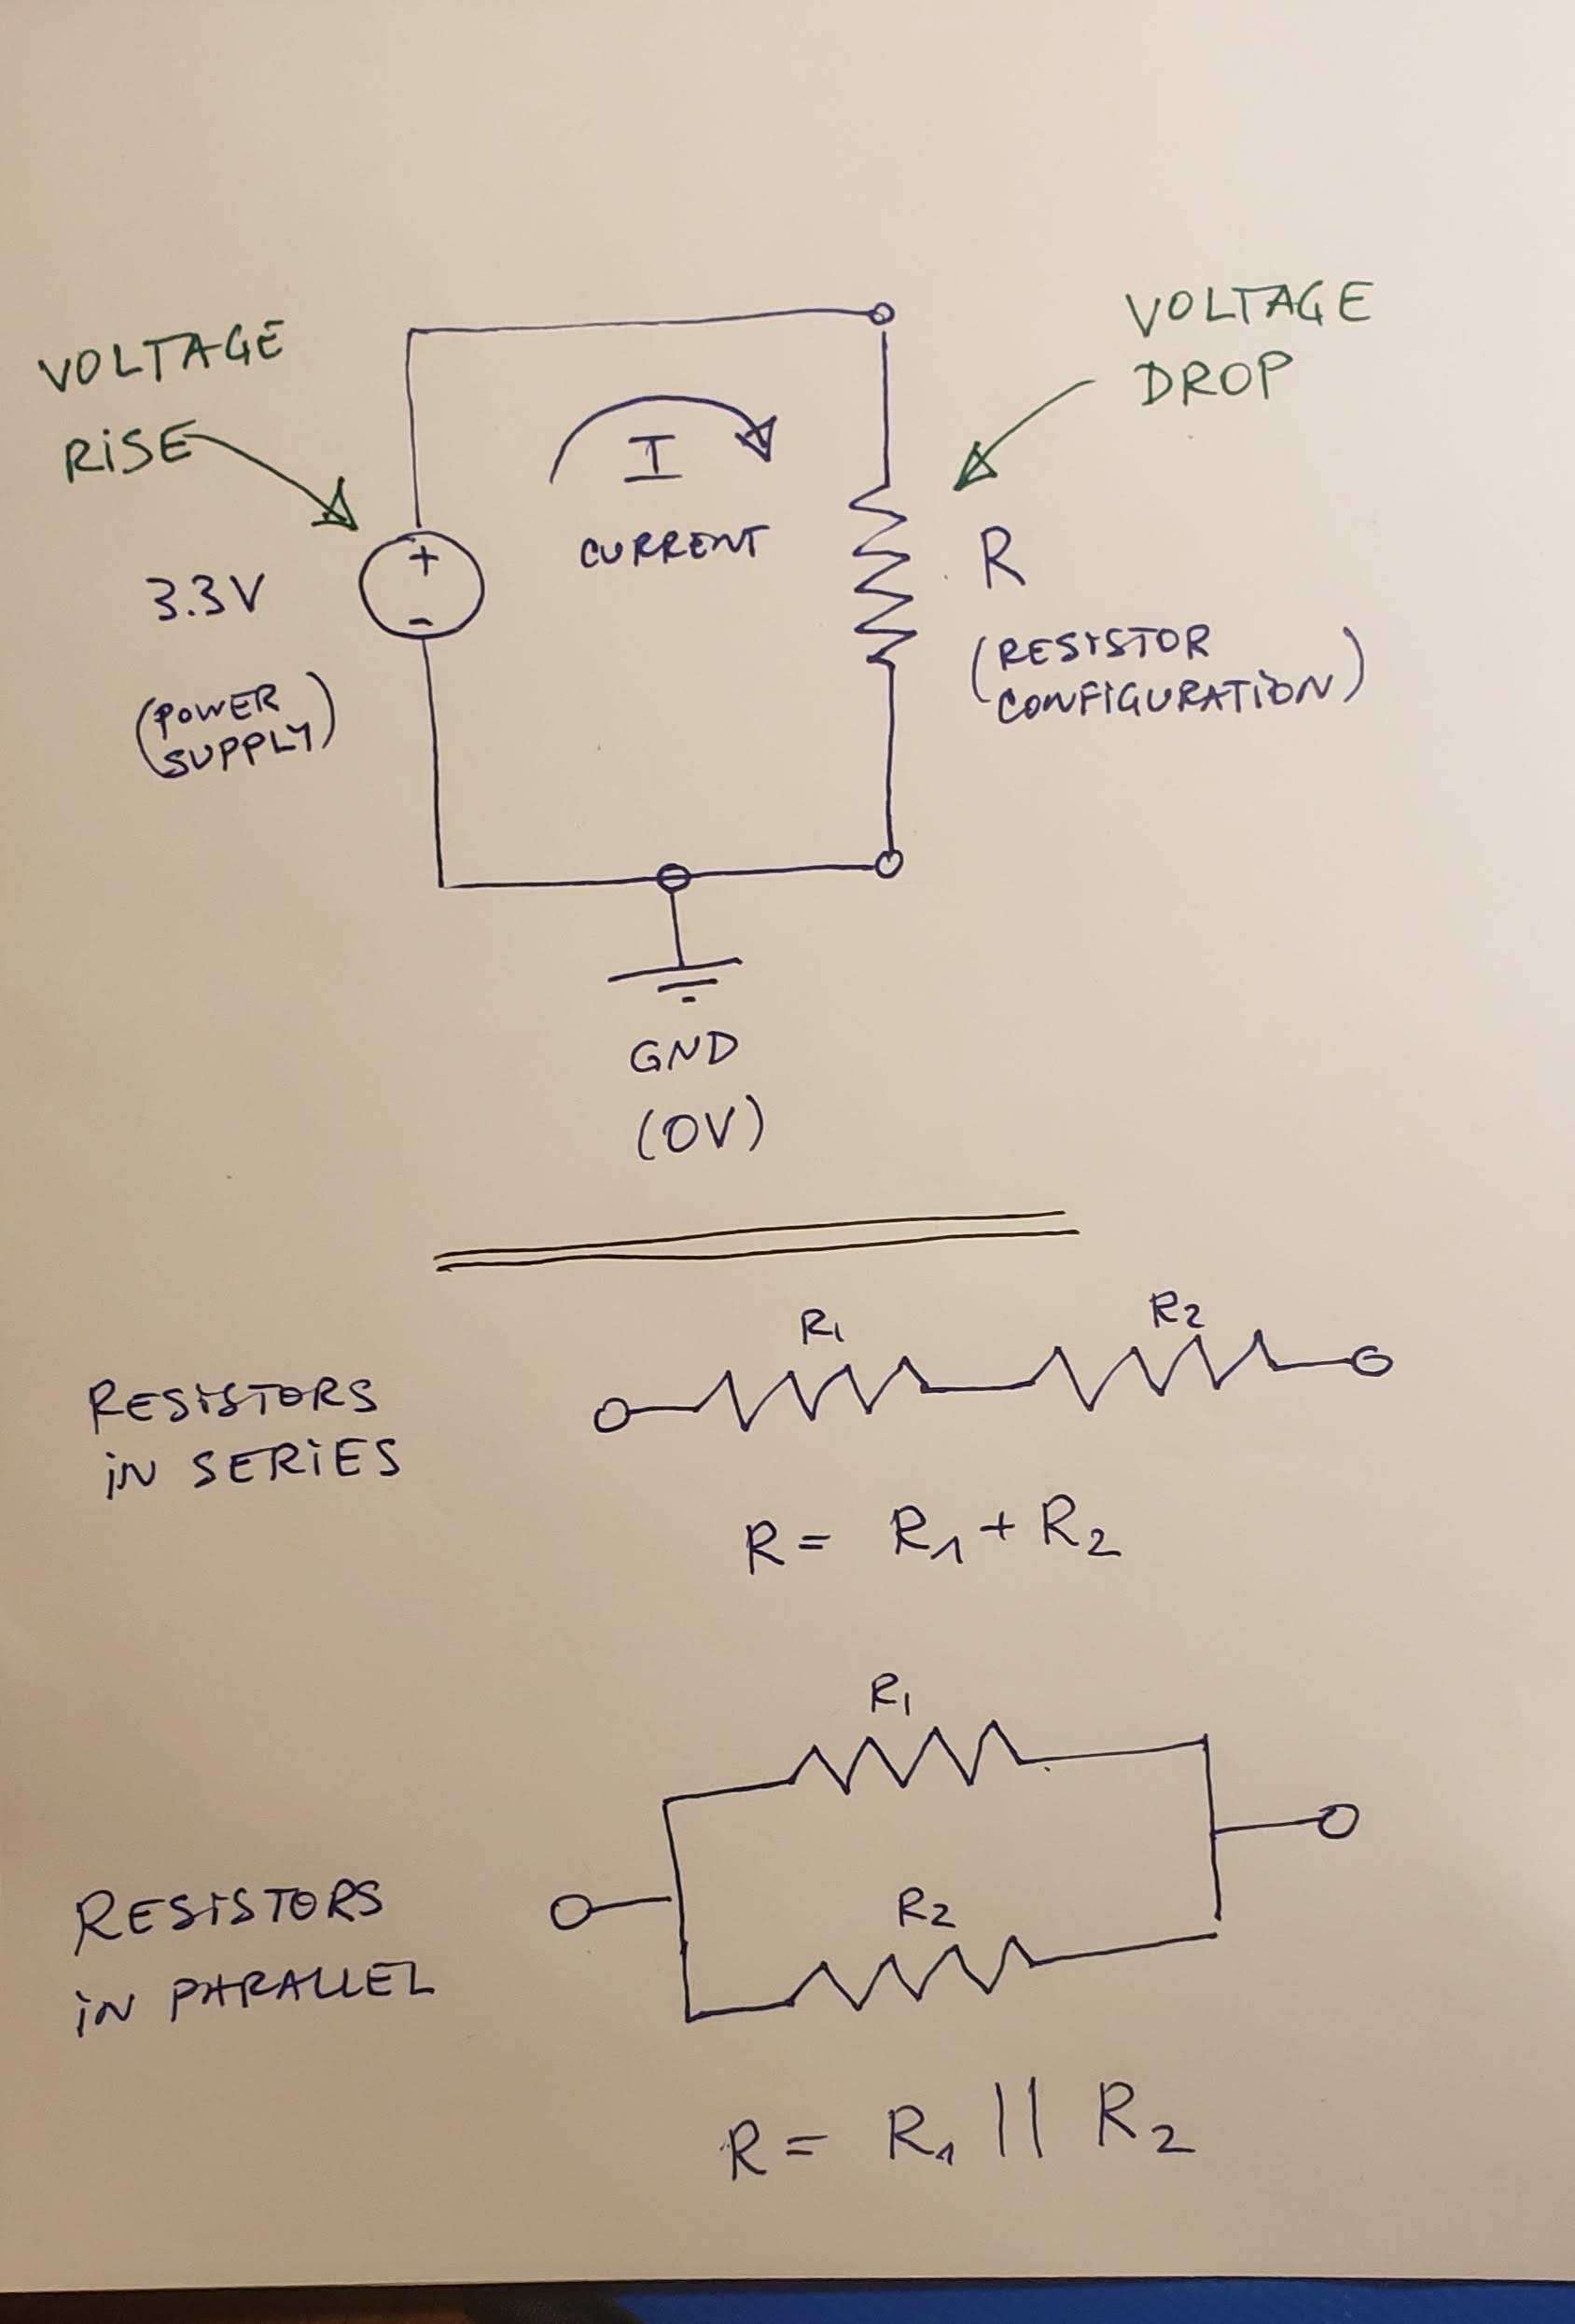 VOLTAGE
RiSE
VOLTAGE
DROP
I
CURRENT
+
-
3.3V
(POWER
SUPPLY)
R
(RESiSTOR
CONFiGURATiON)
GND
(0V)
R1
R2
RESiSTORS
iN SERiES
R = R1 + R2
R1
RESiSTORS
iN PARALLEL
R2
R = R1 || R2